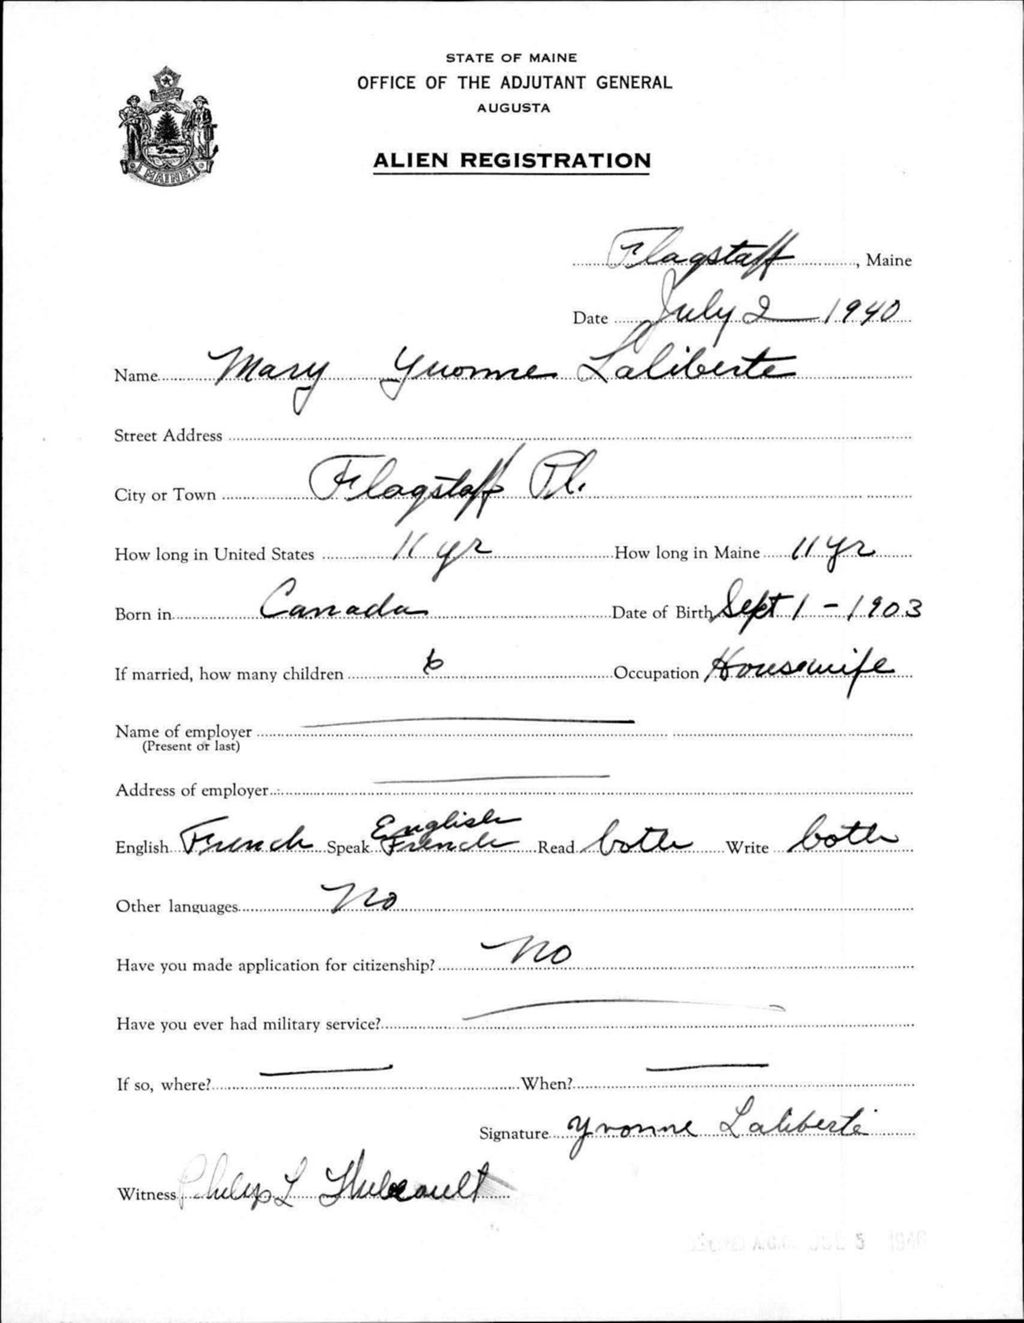 STATE OF MAINE
OFFICE OF THE ADJUTANT GENERAL
AUGUSTA
ALIEN REGISTRATION
MAINE
Flagstaff, Maine
Date July 2 1940
Name Mary Yvonne Laliberte
Street Address
City or Town Flagstaff Pl.
How long in United States 11 yr How long in Maine 11 yr
Born in Canada Date of Birth Sept 1 - 1903
If married, how many children 6 Occupation Housewife
Name of employer
(Present or last)
Address of employer
English
English French Speak French Read both Write both
Other languages No
Have you made application for citizenship? No
Have you ever had military service?
If so, where? When?
Signature Yvonne Laliberté
Witness Philip L
A.G.O. 5